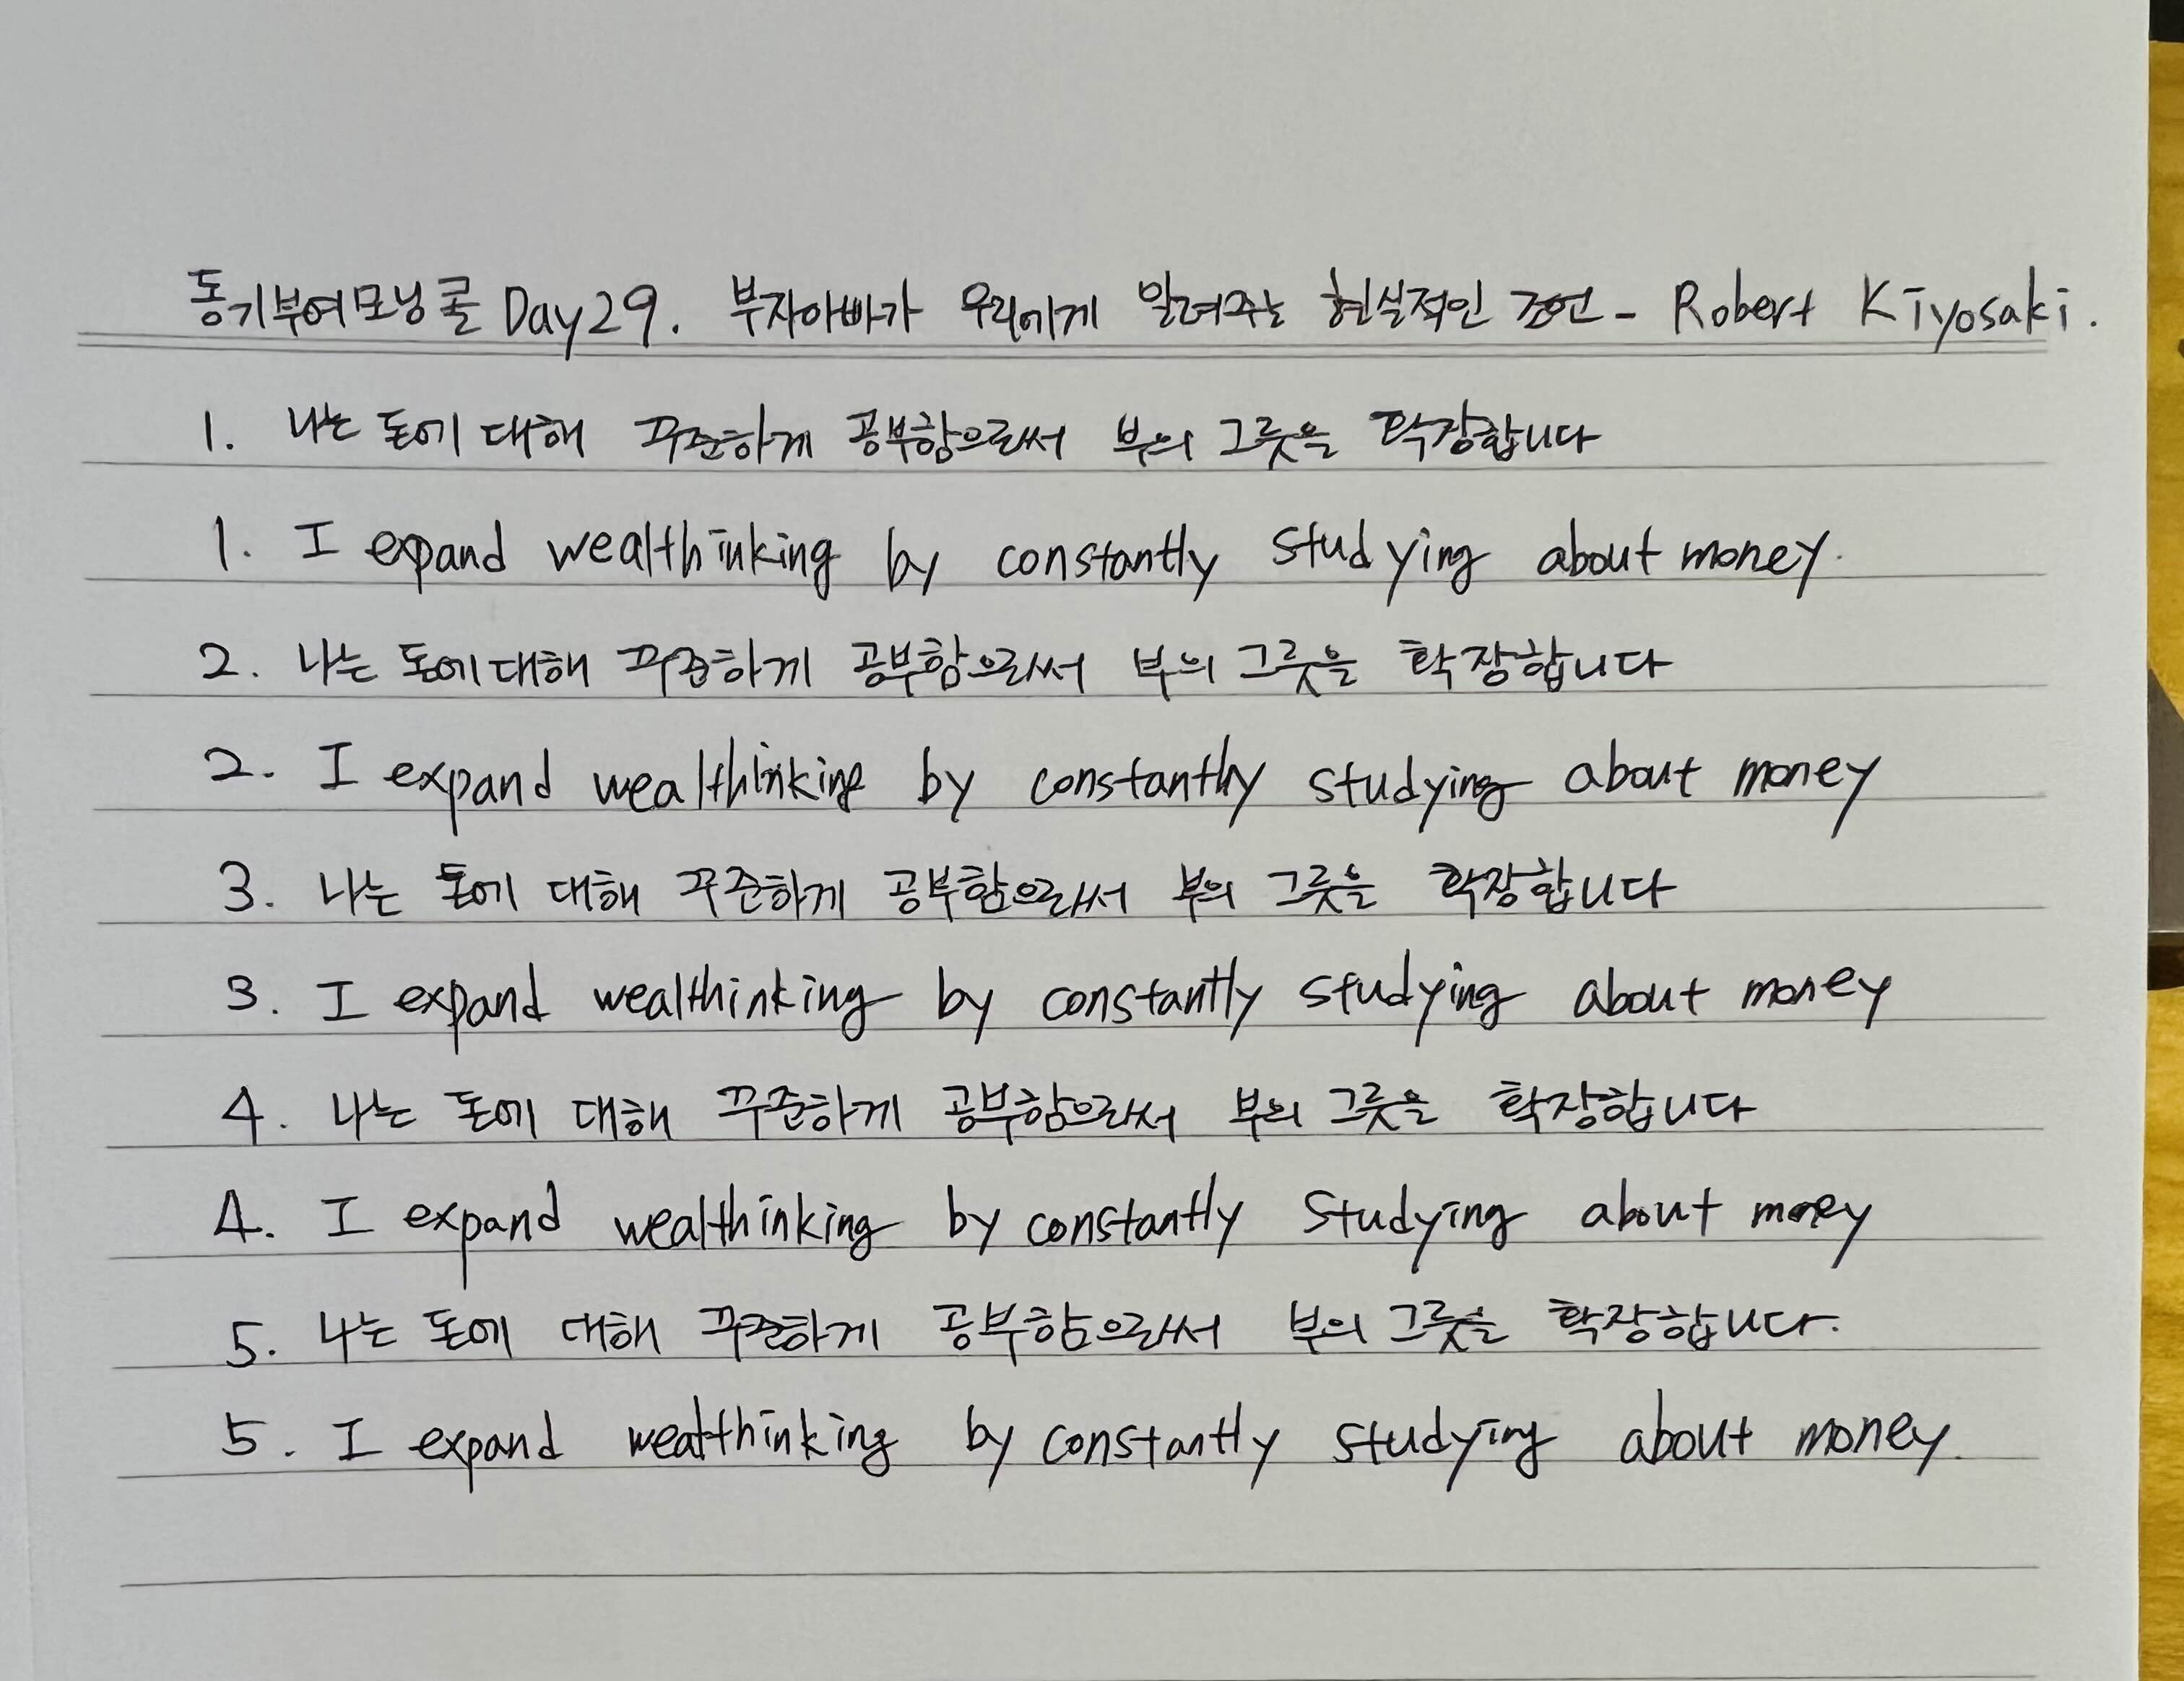 동기부여모닝콜 Day29. 부자아빠가 우리에게 알려주는 현실적인 조언 - Robert Kiyosaki.
1. 나는 돈에 대해 꾸준하게 공부함으로써 부의 그릇을 확장합니다
1. I expand wealthinking by constantly studying about money.
2. 나는 돈에 대해 꾸준하게 공부함으로써 부의 그릇을 확장합니다
2. I expand wealthinking by constantly studying about money
3. 나는 돈에 대해 꾸준하게 공부함으로써 부의 그릇을 확장합니다
3. I expand wealthinking by constantly studying about money
4. 나는 돈에 대해 꾸준하게 공부함으로써 부의 그릇을 확장합니다
4. I expand wealthinking by constantly studying about money
5. 나는 돈에 대해 꾸준하게 공부함으로써 부의 그릇을 확장합니다.
5. I expand wealthinking by constantly studying about money.